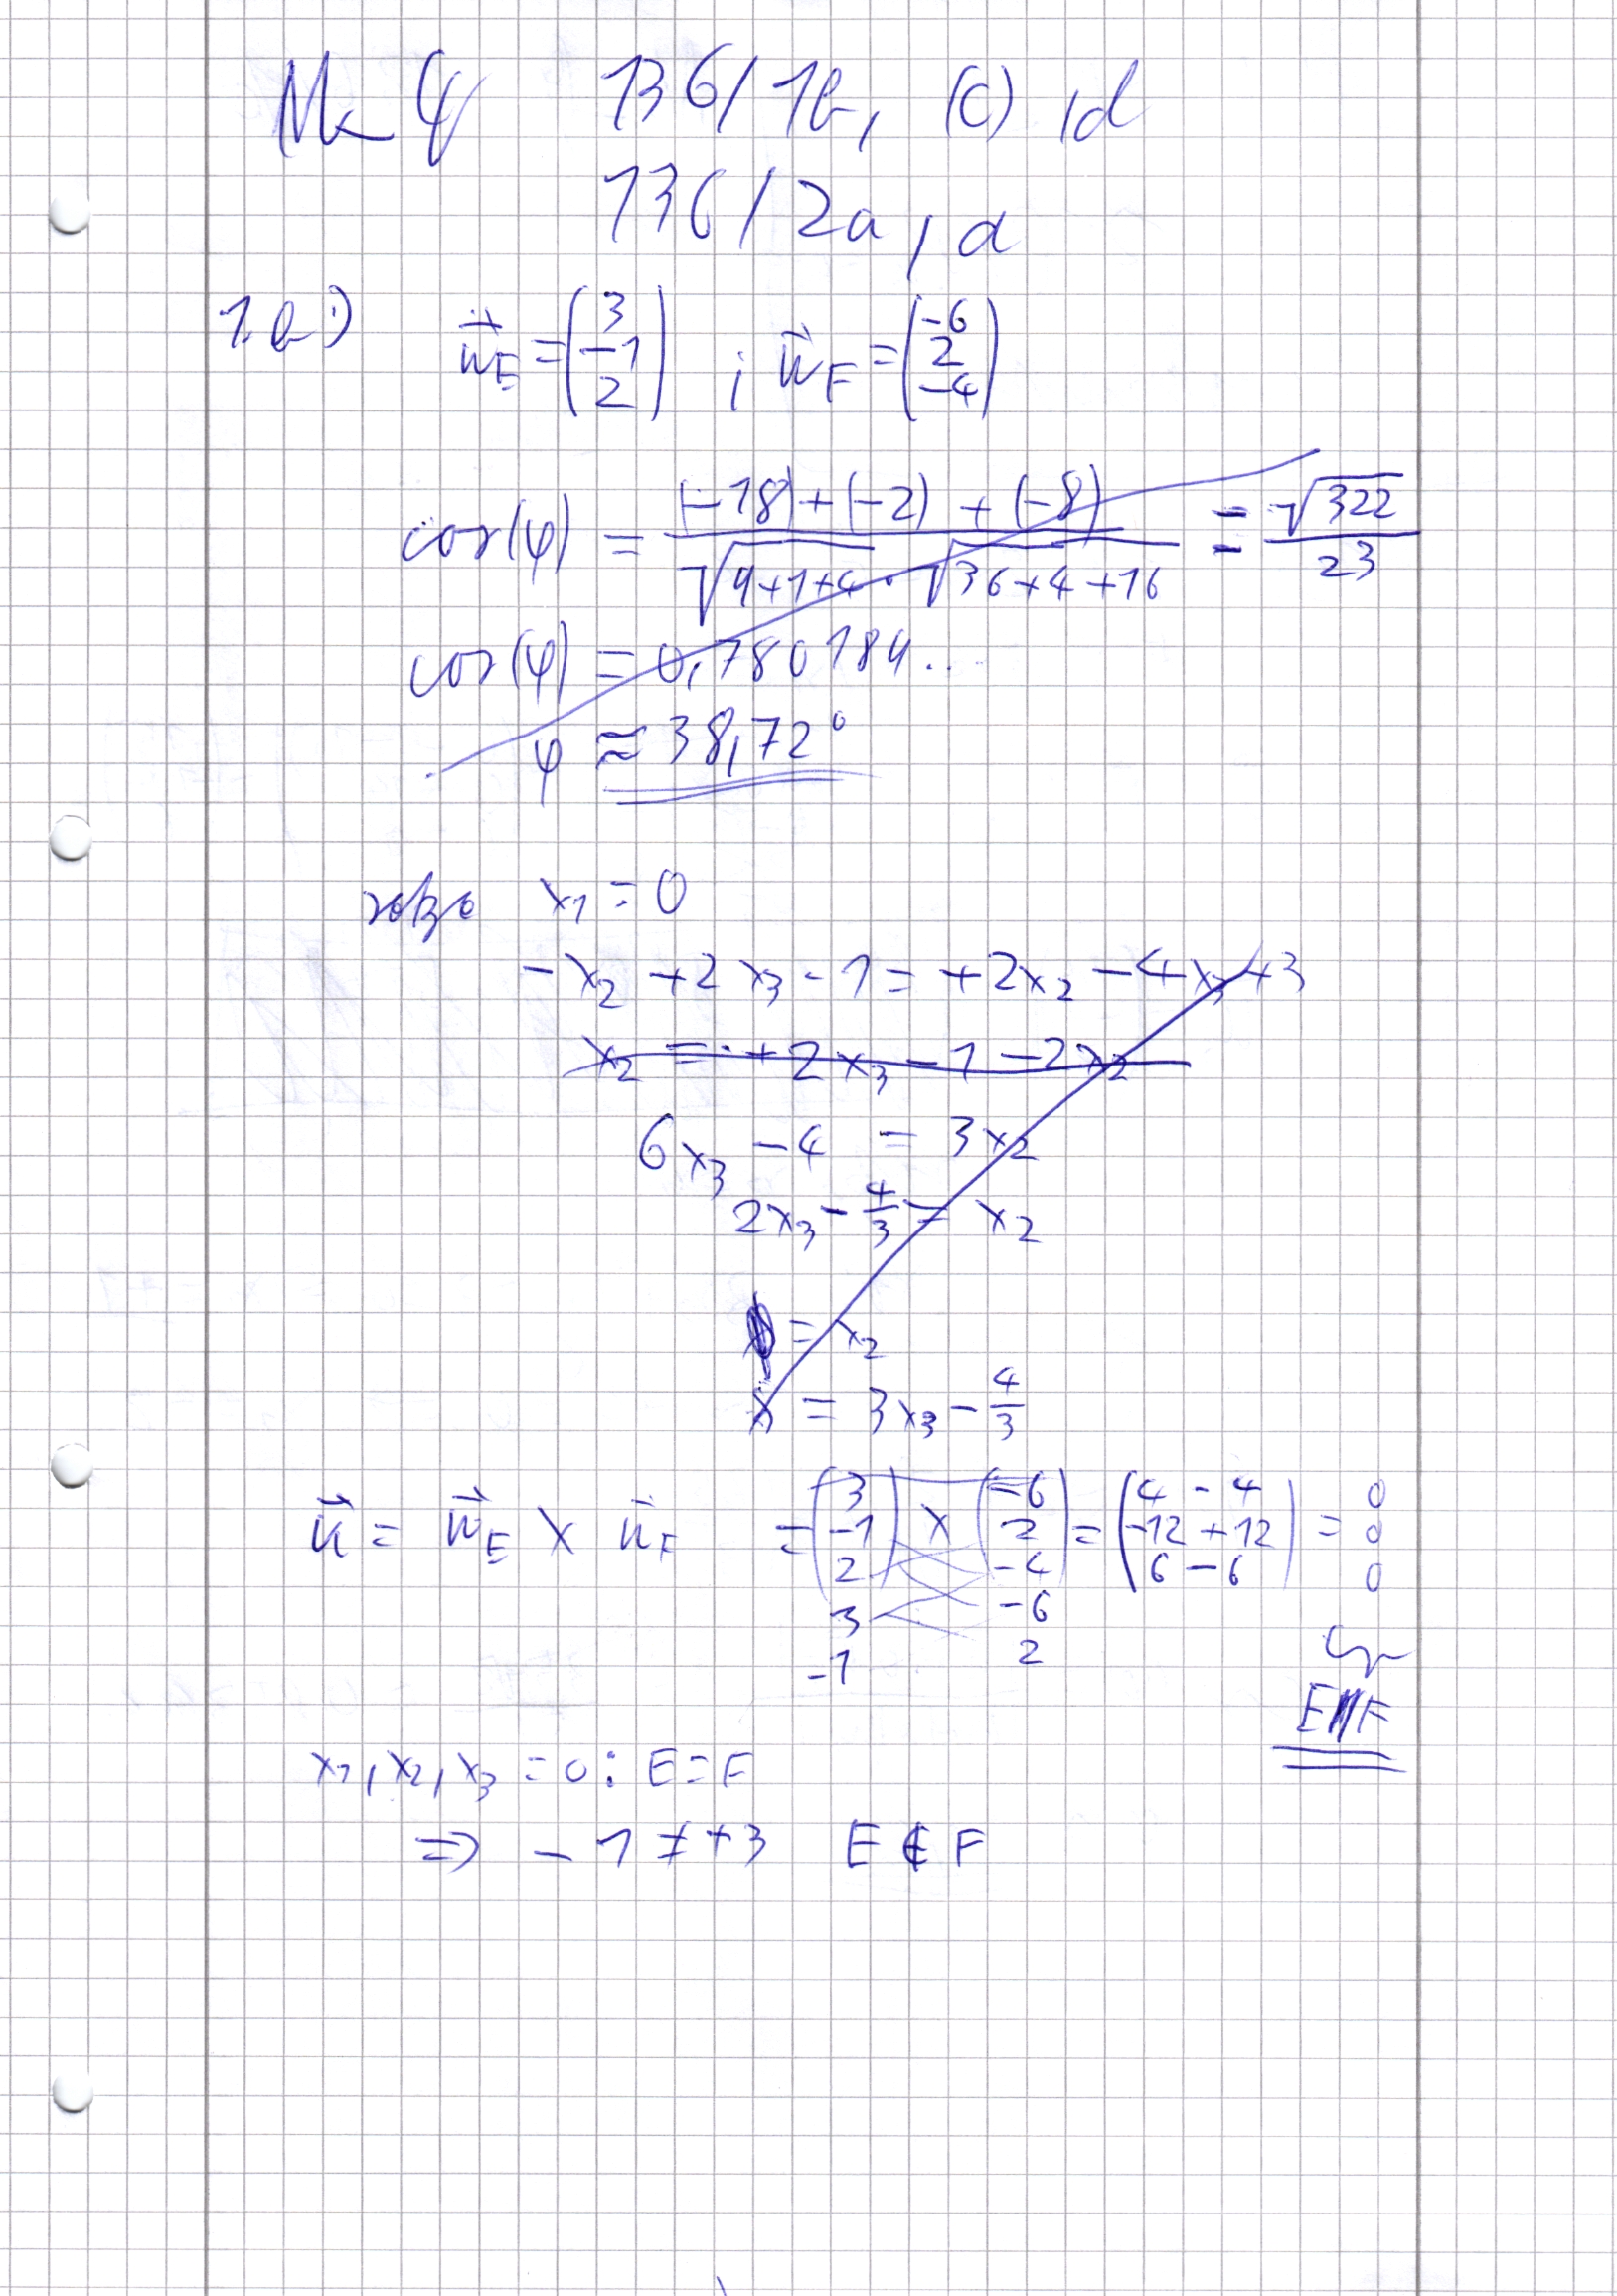 136/1b, (c), d
136/2a, d
1.b) n⃗_E = (3 -1 2) ; n⃗_F = (-6 2 -4)
cos(φ) = ((-18)+(-2)+(-8))/(√(9+1+4) · √(36+4+16)) = √322/23
cos(φ) = 0,780184..
φ ≈ 38,72°
x₁ = 0
-x₂ + 2x₃ - 1 = +2x₂ - 4x₃ + 3
x₂ = + 2x₃ - 1 - 2x₂
6x₃ - 4 = 3x₂
2x₃ - 4/3 = x₂
= x₂
= 3x₃ - 4/3
u⃗ = n⃗_E × n⃗_F = (3 -1 2) × (-6 2 -4) = (4-4 -12+12 6-6) = 0 0 0
3 -6
-1 2
E∥F
x₁, x₂, x₃ = 0 : E = F
⇒ -1 ≠ +3 E ∉ F